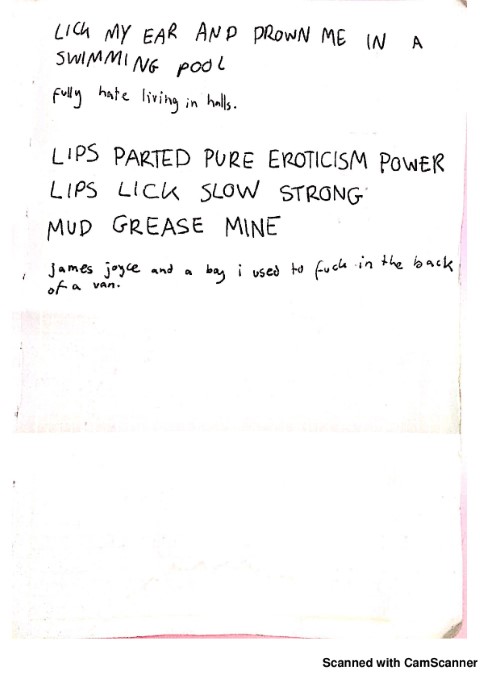 LICK MY EAR AND DROWN ME IN A
SWIMMING POOL
fully hate living in halls.
LIPS PARTED PURE EROTICISM POWER
LIPS LICK SLOW STRONG
MUD GREASE MINE
james joyce and a i used to fuck in the back
of a van.
Scanned with CamScanner